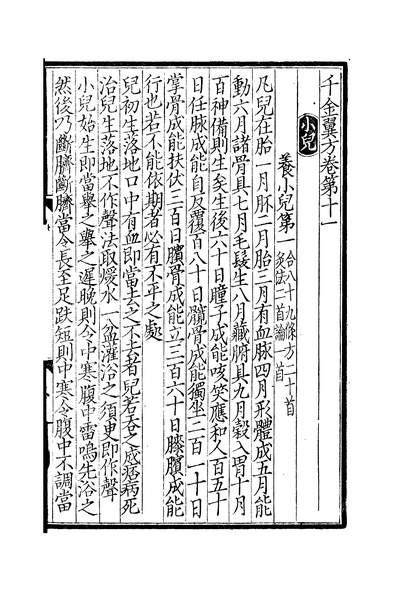 千金翼方卷第十一
小兒
養小兒第一 合八十九條 方二十首
灸法一首 論一首
凡兒在胎一月胚二月胎三月有血脉四月形體成五月能
動六月諸骨具七月毛髮生八月藏腑具九月穀入胃十月
百神備則生矣生後六十日瞳子成能咳笑應和人百五十
日任脉成能自反覆百八十日髖骨成能獨坐二百一十日
掌骨成能扶伏三百日髕骨成能立三百六十日膝髕成能
行也若不能依期者必有不平之處
兒初生落地口中有血即當去之不去者兒若吞之成痞病死
治兒生落地不作聲法取煖水一盆灌浴之須臾即作聲
小兒始生即當舉之舉之遲晚則令中寒腹中雷鳴先浴之
然後乃斷臍斷臍當令長至足趺短則中寒令腹中不調當